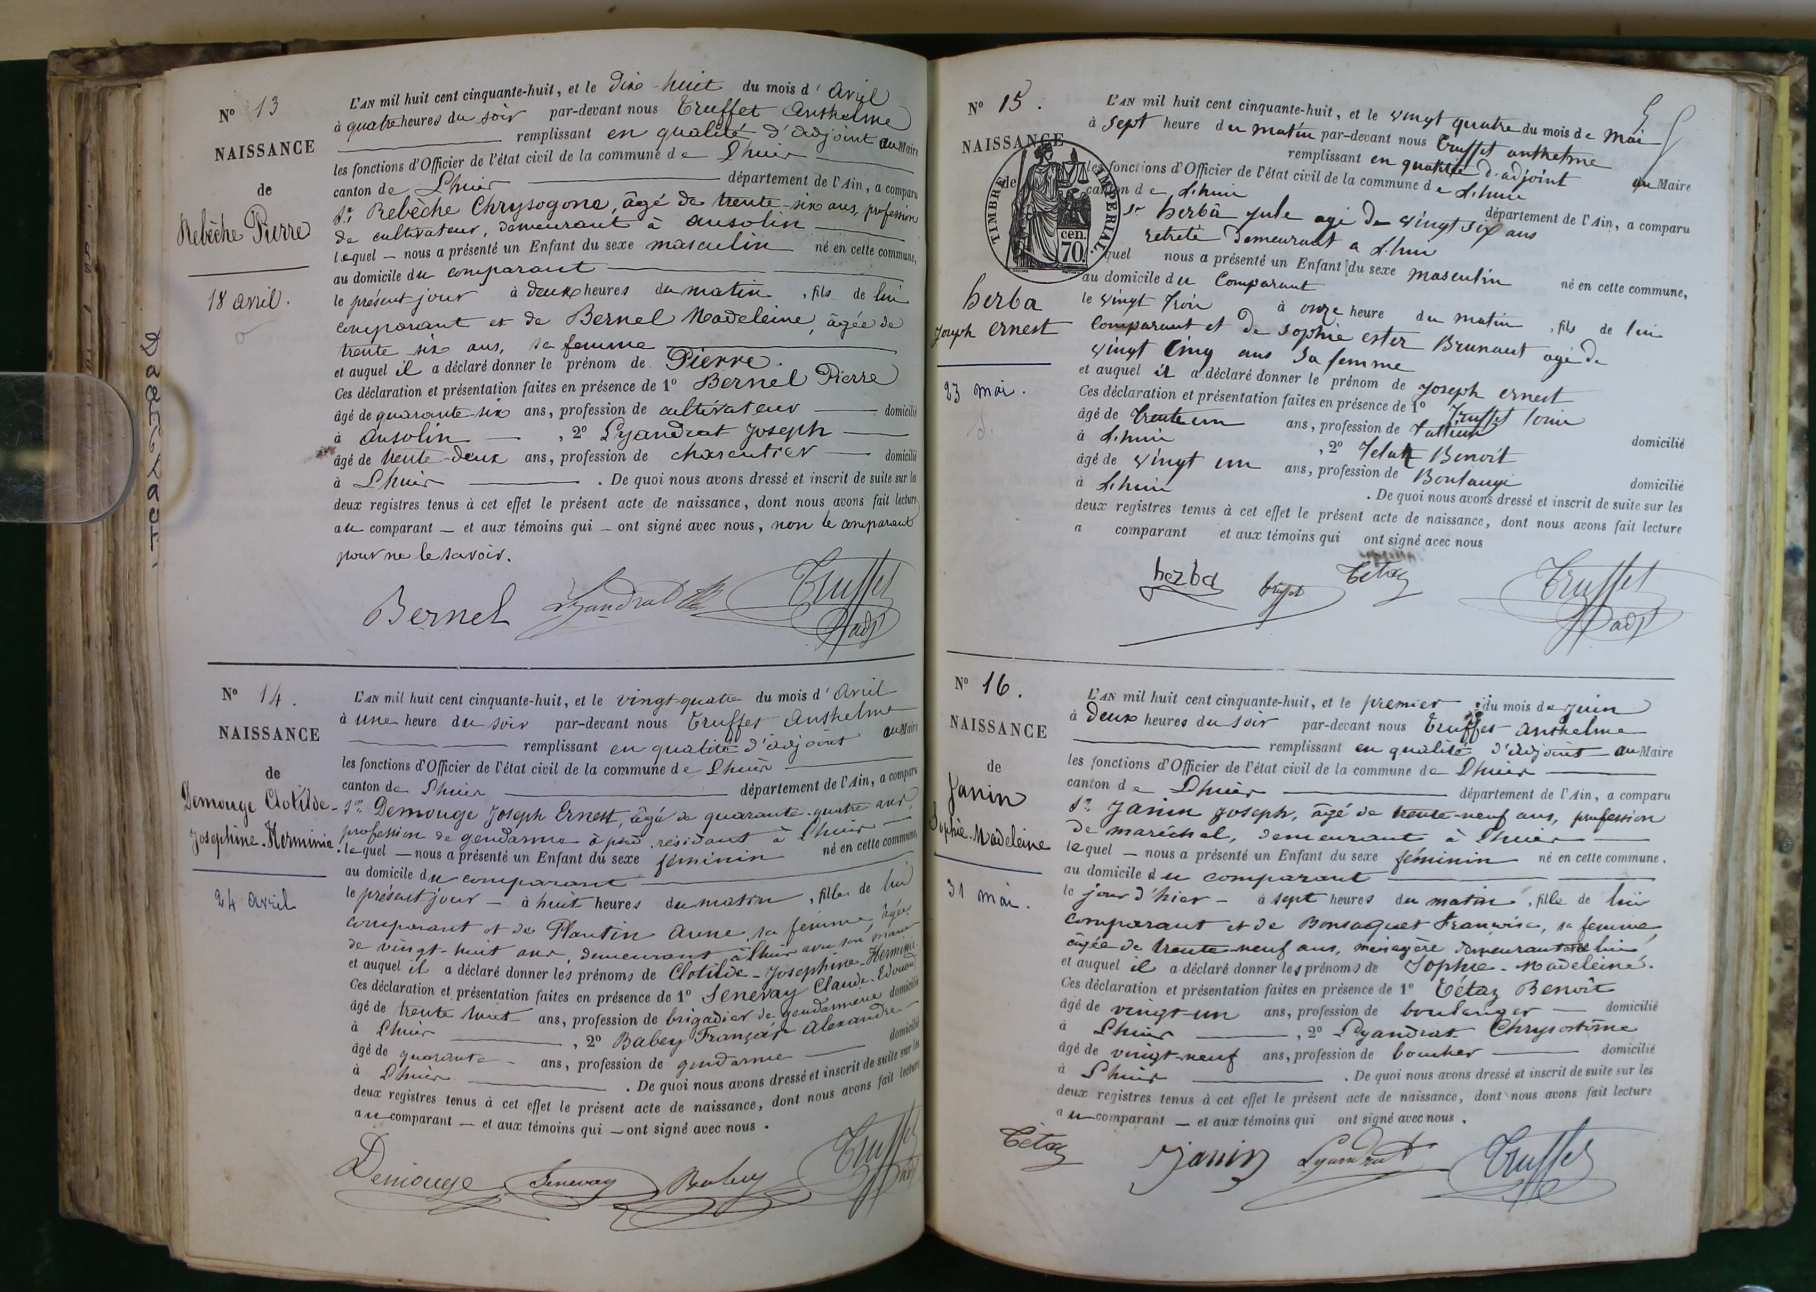 N° 13
NAISSANCE
de
Rebèche Pierre
18 avril.
L'AN mil huit cent cinquante-huit, et le dix-huit du mois d'Avril
à quatre heures du soir par-devant nous Truffet Anthelme
remplissant en qualité d'adjoint au Maire
les fonctions d'Officier de l'état civil de la commune de Lhuis
canton de Lhuis département de l'Ain, a comparu
Sr. Rebèche Chrysogone, âgé de trente-six ans, profession
de cultivateur, demeurant à ansolin
lequel nous a présenté un Enfant du sexe masculin né en cette commune,
au domicile du comparant
le présent jour à deux heures du matin, fils de lui
comparant et de Bernel Madeleine, âgée de
trente six ans, sa femme
et auquel il a déclaré donner le prénom de Pierre.
Ces déclaration et présentation faites en présence de 1° Bernel Pierre
âgé de quarante-six ans, profession de cultivateur domicilié
à ansolin, 2° Lyandrat Joseph
âgé de trente-deux ans, profession de charcutier domicilié
à Lhuis. De quoi nous avons dressé et inscrit de suite sur la
deux registres tenus à cet effet le présent acte de naissance, dont nous avons fait lecture
au comparant et aux témoins qui ont signé avec nous, non le comparant
pour ne le savoir.
Bernel Lyandrat Truffet
adjt
N° 14.
NAISSANCE
de
Demouge Clotilde-
Josephine-Herminie.
24 avril
L'AN mil huit cent cinquante-huit, et le vingt-quatre du mois d'Avril
à une heure du soir par-devant nous Truffet Anthelme
remplissant en qualité d'adjoint au Maire
les fonctions d'Officier de l'état civil de la commune de Lhuis
canton de Lhuis département de l'Ain, a comparu
Sr. Demouge Joseph Ernest, âgé de quarante-quatre ans,
profession de gendarme à pied résidant à Lhuis
lequel nous a présenté un Enfant du sexe féminin né en cette commune,
au domicile du comparant
le présent jour à huit heures du matin, fille de lui
comparant et de Plantin Anne, sa femme, âgée
de vingt-huit ans, demeurant à Lhuis avec son mari
et auquel il a déclaré donner les prénoms de Clotilde-Josephine-Herminie
Ces déclaration et présentation faites en présence de 1° Senevay Claude-Edouard
âgé de trente huit ans, profession de brigadier de gendarmerie domicilié
à Lhuis, 2° Babey François Alexandre
âgé de quarante ans, profession de gendarme domicilié
à Lhuis. De quoi nous avons dressé et inscrit de suite sur les
deux registres tenus à cet effet le présent acte de naissance, dont nous avons fait lecture
au comparant et aux témoins qui ont signé avec nous.
Demouge Senevay Babey Truffet
adjt
N° 15.
NAISSANCE
de
TIMBRE IMPERIAL
70 cen.
herba
Joseph ernest
23 mai.
L'AN mil huit cent cinquante-huit, et le vingt quatre du mois de mai
à sept heure du matin par-devant nous Truffet anthelme
remplissant en qualité d'adjoint au Maire
les fonctions d'Officier de l'état civil de la commune de Lhuis
canton de Lhuis département de l'Ain, a comparu
Sr herbâ jule agé de vingt six ans
retreté demeurant a Lhuis
quel nous a présenté un Enfant du sexe masculin né en cette commune,
au domicile du Comparant
le vingt trois à onze heure du matin, fils de lui
Comparant et de sophie ester Brunant agé de
vingt cinq ans sa femme
et auquel il a déclaré donner le prénom de Joseph ernest
Ces déclaration et présentation faites en présence de 1° Truffet louis
âgé de trente un ans, profession de domicilié
à Lhuis, 2° Benoit
âgé de vingt un ans, profession de Boulange domicilié
à Lhuis. De quoi nous avons dressé et inscrit de suite sur les
deux registres tenus à cet effet le présent acte de naissance, dont nous avons fait lecture
a comparant et aux témoins qui ont signé avec nous
herba truffet Tétaz Truffet
adjt
N° 16.
NAISSANCE
de
Janin
Sophie-Madeleine
31 mai.
L'AN mil huit cent cinquante-huit, et le premier du mois de juin
à deux heures du soir par-devant nous Truffet anthelme
remplissant en qualité d'adjoint au Maire
les fonctions d'Officier de l'état civil de la commune de Lhuis
canton de Lhuis département de l'Ain, a comparu
Sr. Janin Joseph, âgé de trente-neuf ans, profession
de maréchal, demeurant à Lhuis
lequel nous a présenté un Enfant du sexe féminin né en cette commune.
au domicile du comparant
le jour d'hier à sept heures du matin, fille de lui
comparant et de Bonsaquet Françoise, sa femme,
âgée de trente-neuf ans, ménagère demeurant avec lui
et auquel il a déclaré donner les prénoms de Sophie-Madeleine.
Ces déclaration et présentation faites en présence de 1° Tétaz Benoît
âgé de vingt-un ans, profession de boulanger domicilié
à Lhuis, 2° Lyandrat Chrysostôme
âgé de vingt-neuf ans, profession de boucher domicilié
à Lhuis. De quoi nous avons dressé et inscrit de suite sur les
deux registres tenus à cet effet le présent acte de naissance, dont nous avons fait lecture
au comparant et aux témoins qui ont signé avec nous.
Tétaz Janin Lyandrat Truffet